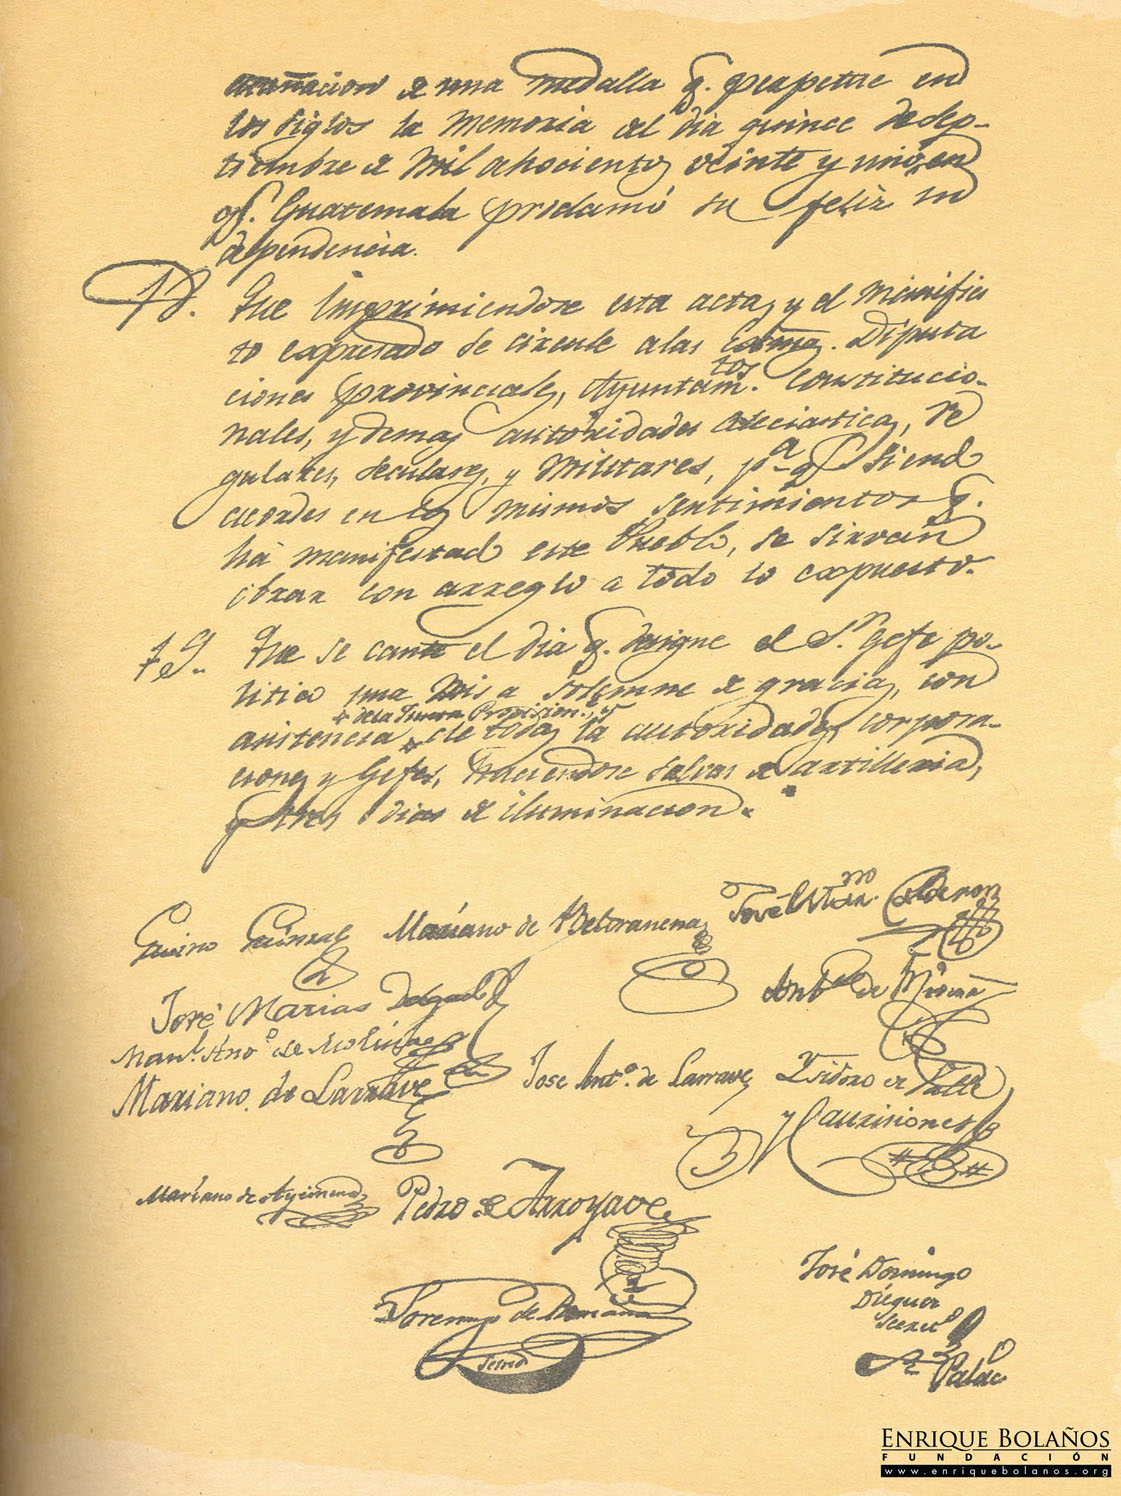 acuñacion de una medalla q. perpetue en
los siglos la memoria del dia quince de Sep-
tiembre de mil ochocientos veinte y uno, en
q. Guatemala proclamó su feliz in
dependencia.
18. Que imprimiendose esta acta, y el Manifies
to expresado se circule a las Diputa
ciones provinciales, Ayuntam.tos constitucio-
nales, y demas autoridades eclesiasticas, re
gulares, seculares, y militares, p.a q. siendo
acordes en los mismos sentimientos q.
há manifestado este Pueblo, se sirvan
obrar con arreglo a todo lo expuesto.
19. Que se cante el dia q. designe el S.r Gefe po-
litico una Misa solemne de gracias, con
+ de la Propision.,
asistencia de todas las autoridades, corpora-
ciones y Gefes, haciendose salvas de artilleria,
y tres dias de iluminacion.
Gavino Gainza Mariano de Beltranena José Calderon
José Matias Delgado Ant.o de
Man.l Ant.o de Molina
Mariano de Larrave Jose Ant.o de Larrave Ysidoro de Valle
y Castriciones
Mariano de Aycinena Pedro de Arroyave
Lorenzo de Romaña José Domingo
Dieguez
Secret.o
Palac
ENRIQUE BOLAÑOS
FUNDACIÓN
www.enriquebolanos.org